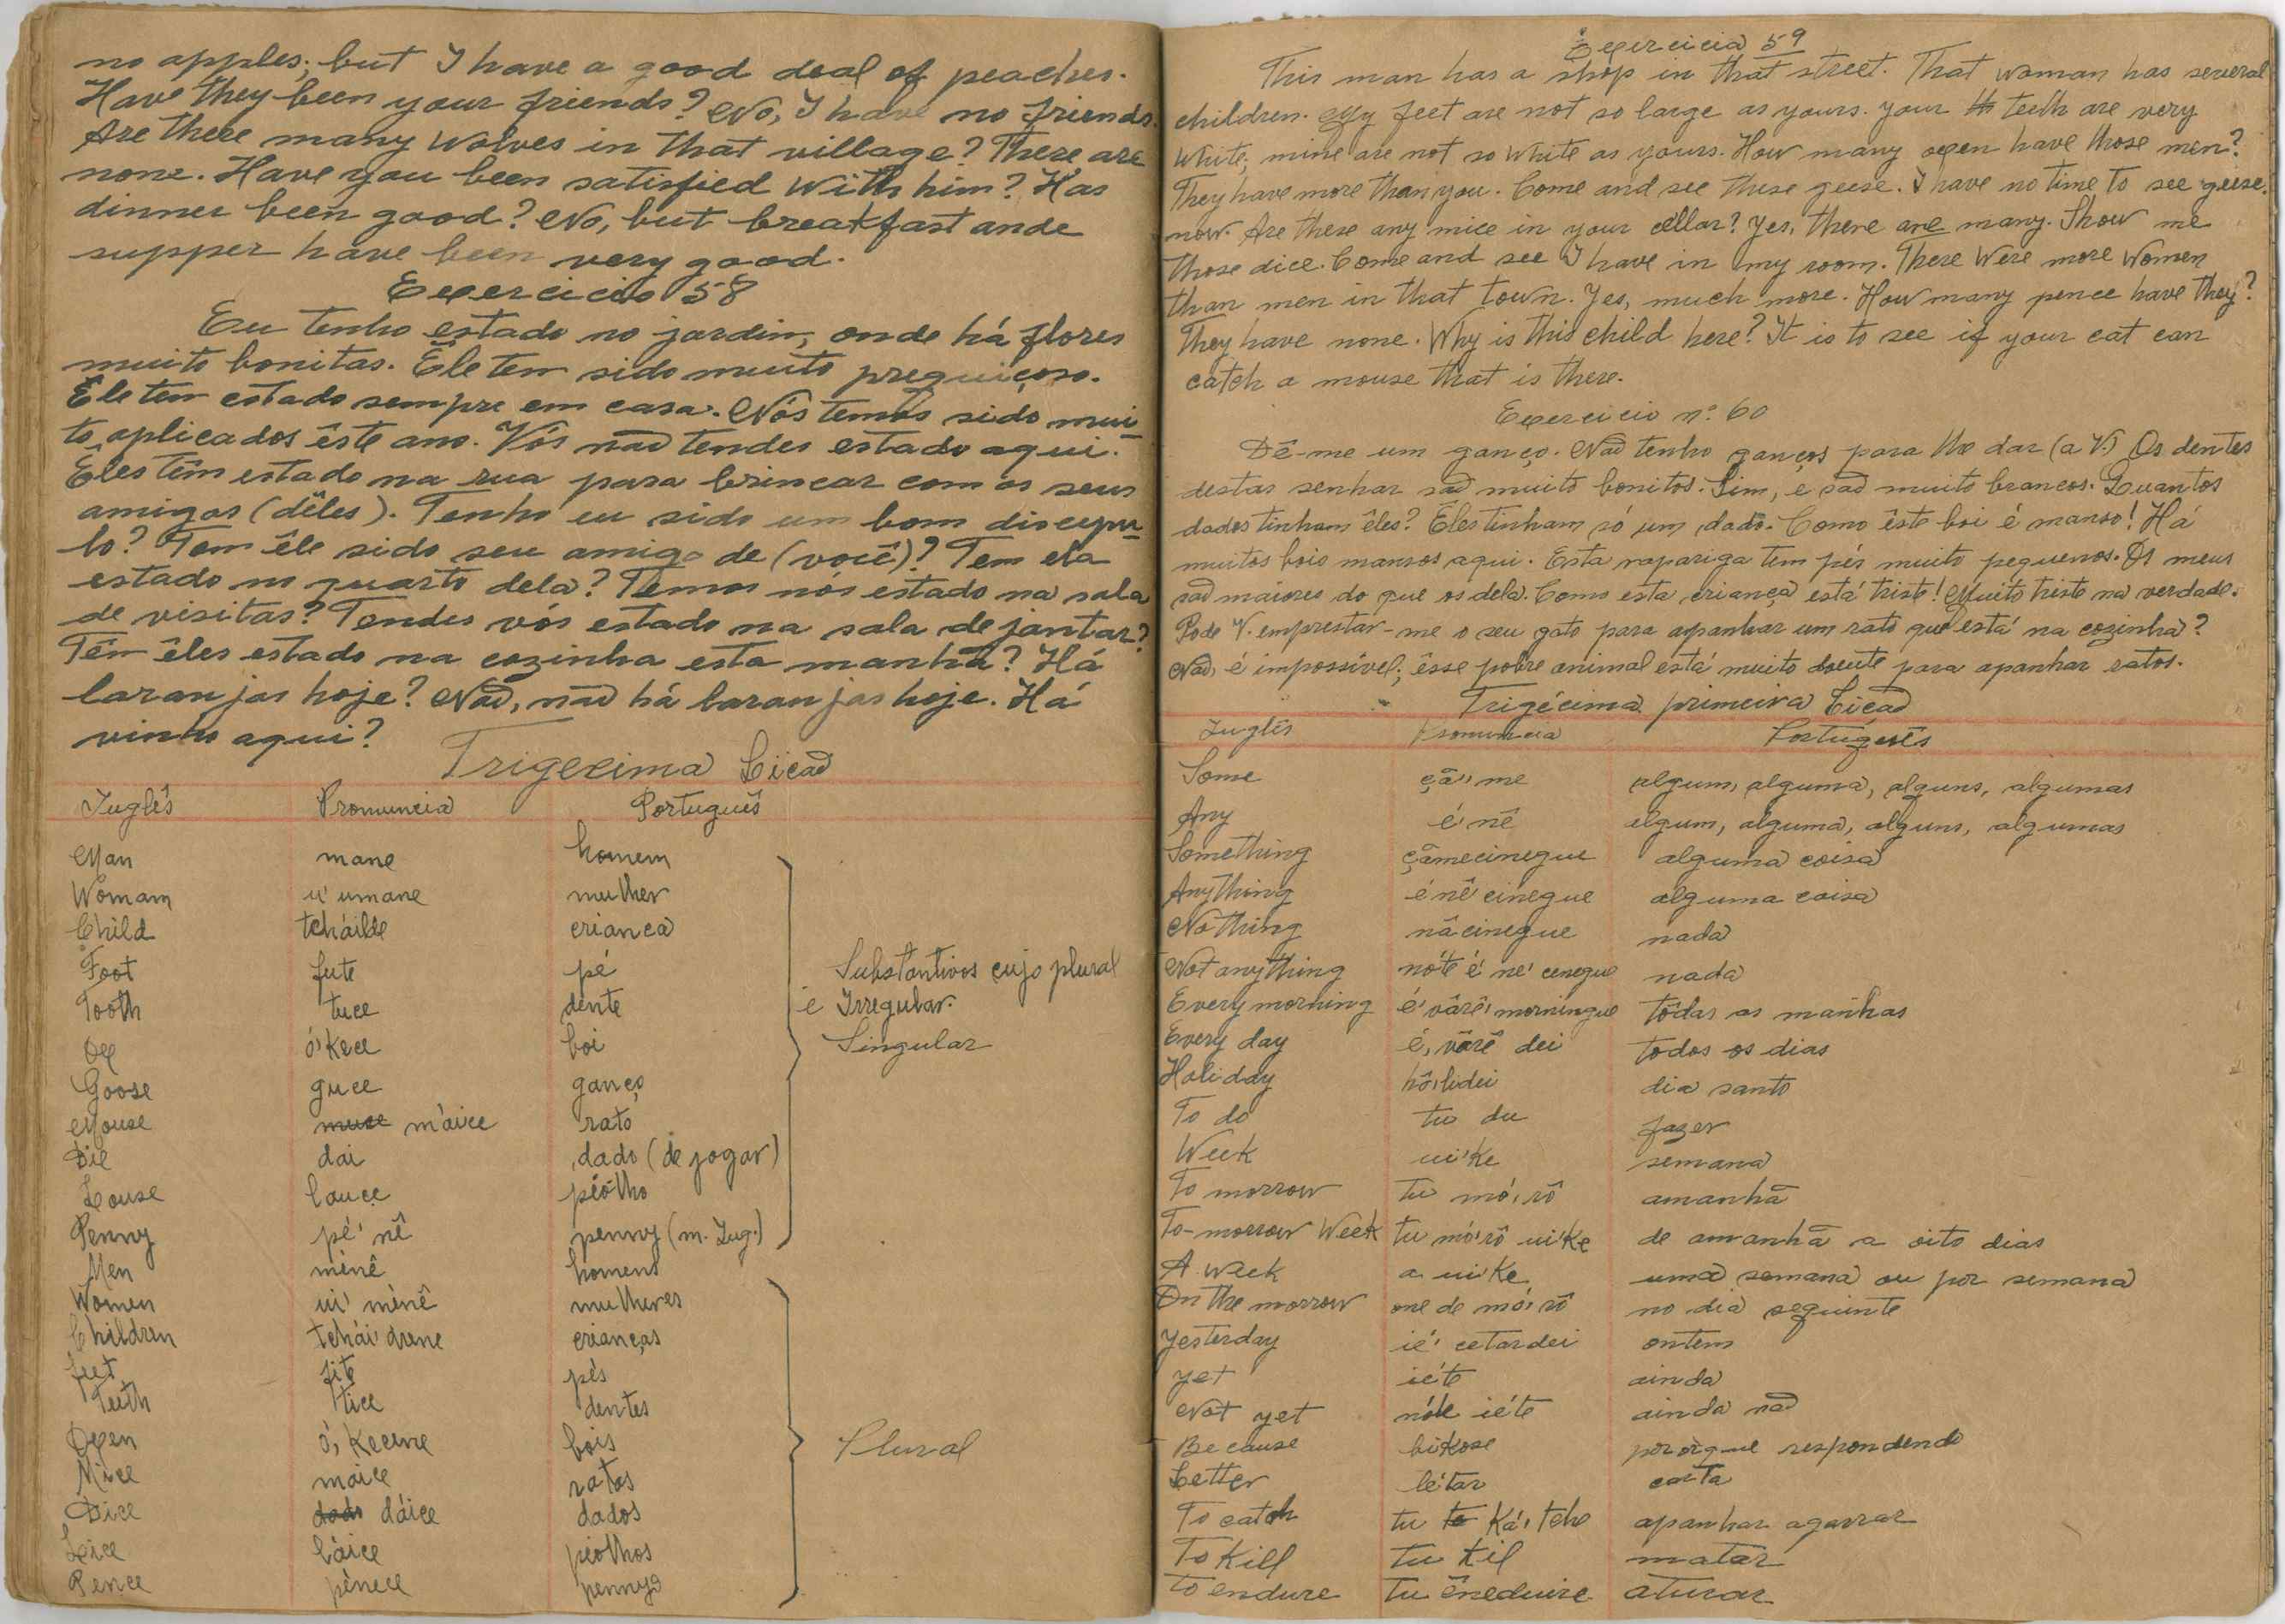 no apples; but I have a good deal of peaches.
Have they been your friends? No, I have no friends.
Are there many wolves in that village? There are
none. Have you been satisfied with him? Has
dinner been good? No, but breakfast ande
supper have been very good.
Exercicio 58
Eu tenho estado no jardim, onde há flores
muito bonitas. Êle tem sido muito preguiçoso.
Êle tem estado sempre em casa. Nós temos sido mui-
to aplicados êste ano. Vós não tendes estado aqui.
Êles têm estado na rua para brincar com os seus
amigos (dêles). Tenho eu sido um bom discipu-
lo? Tem êle sido seu amigo de (você)? Tem ela
estado no quarto dela? Temos nós estado na sala
de visitas? Tendes vós estado na sala de jantar?
Têm êles estado na cozinha esta manhã? Há
laranjas hoje? Não, não há laranjas hoje. Há
vinho aqui?
Trigecima Lição
Inglês Pronuncia Português
Man mane homem
Womam u'umane mulher
Child tcháilde criança
Foot fute pé
Tooth tuce dente
Ox ó'kce boi
Goose guce ganço
Mouse muse m'aice rato
Die dai dado (de jogar)
Louse lauce piôlho
Penny pé'nê penny (m. Ing.)
Substantivos cujo plural
é Irregular.
Singular
Men mènê homens
Women ui'mènê mulheres
Children tchái'drene crianças
feet fite pés
Teeth tice dentes
Oxen ó,kcene bois
Mice maice ratos
Dice dado dáice dados
Lice láice piolhos
Pence pènece pennys
Plural
Exercicio 59
This man has a shop in that street. That woman has several
children. My feet are not so large as yours. Your th teeth are very
white; mine are not so white as yours. How many oxen have those men?
They have more than you. Come and see these geese. I have no time to see geese.
now. Are there any mice in your cellar? Yes, there are many. Show me
those dice. Come and see I have in my room. There were more women
than men in that town. Yes, much more. How many pence have they?
They have none. Why is this child here? It is to see if your cat can
catch a mouse that is there.
Exercicio nº 60
Dê-me um ganço. Não tenho ganços para lhe dar (a V.) Os dentes
destas senhar são muito bonitos. Sim, e são muito brancos. Quantos
dados tinham êles? Êles tinham só um dado. Como êste boi é manso! Há
muitos bois mansos aqui. Esta rapariga tem pés muito pequenos. Os meus
são maiores do que os dela. Como esta criança está triste! Muito triste na verdade.
Pode V. emprestar-me o seu gato para apanhar um rato que está na cozinha?
Não, é impossível; êsse pobre animal está muito doente para apanhar ratos.
Trigécima primeira Lição
Inglês Pronuncia Português
Some çã''me algum, alguma, alguns, algumas
Any é'nê algum, alguma, alguns, algumas
Something çãmecinegue alguma coisa
Anything é'nê cinegue alguma coisa
Nothing nâcinegue nada
Not anything nóte é'ne' cenegue nada
Every morning é'vãrê morningue tôdas as manhas
Every day é,vãrê dei todos os dias
Holiday hó,lidei dia santo
To do tu du fazer
Week ui'ke semana
To morrow tu mó,rô amanhã
To-morrow Week tu mó'rô ui'ke de amanhã a oito dias
A week a ui'ke uma semana ou por semana
On the morrow one de mó,rô no dia seguinte
Yesterday ié'cetardei ontem
Yet iéte ainda
Not yet nóte iéte ainda não
Because bikose porque respondendo
Letter lé'tar carta
To catch tu te ká,tche apanhar agarrar
To kill tu kil matar
To endure tu êneduire aturar